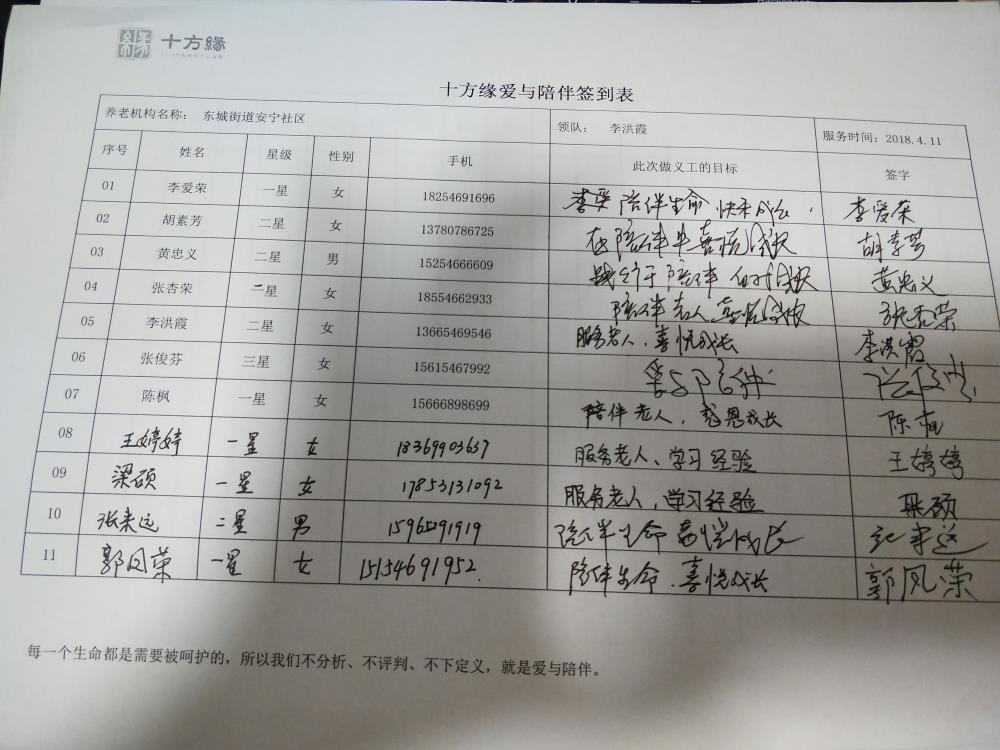 十方缘
SHIFANGYUAN
十方缘爱与陪伴签到表
养老机构名称： 东城街道安宁社区 领队： 李洪霞 服务时间：2018.4.11
序号 姓名 星级 性别 手机 此次做义工的目标 签字
01 李爱荣 一星 女 18254691696 陪伴生命 快乐成长 李爱荣
02 胡素芳 二星 女 13780786725 在陪伴中喜悦成长 胡素芳
03 黄忠义 二星 男 15254666609 陪伴 成长 黄忠义
04 张杏荣 二星 女 18554662933 陪伴老人喜悦成长 张杏荣
05 李洪霞 二星 女 13665469546 服务老人，喜悦成长 李洪霞
06 张俊芬 三星 女 15615467992 爱与陪伴 张俊芬
07 陈枫 一星 女 15666898699 陪伴老人，感恩成长 陈枫
08 王婷婷 一星 女 18369903637 服务老人、学习经验 王婷婷
09 梁硕 一星 女 17853131092 服务老人，学习经验 梁硕
10 张来远 二星 男 陪伴生命 喜悦成长 张来远
11 郭风荣 一星 女 15154691952. 陪伴生命、喜悦成长 郭风荣
每一个生命都是需要被呵护的，所以我们不分析、不评判、不下定义，就是爱与陪伴。